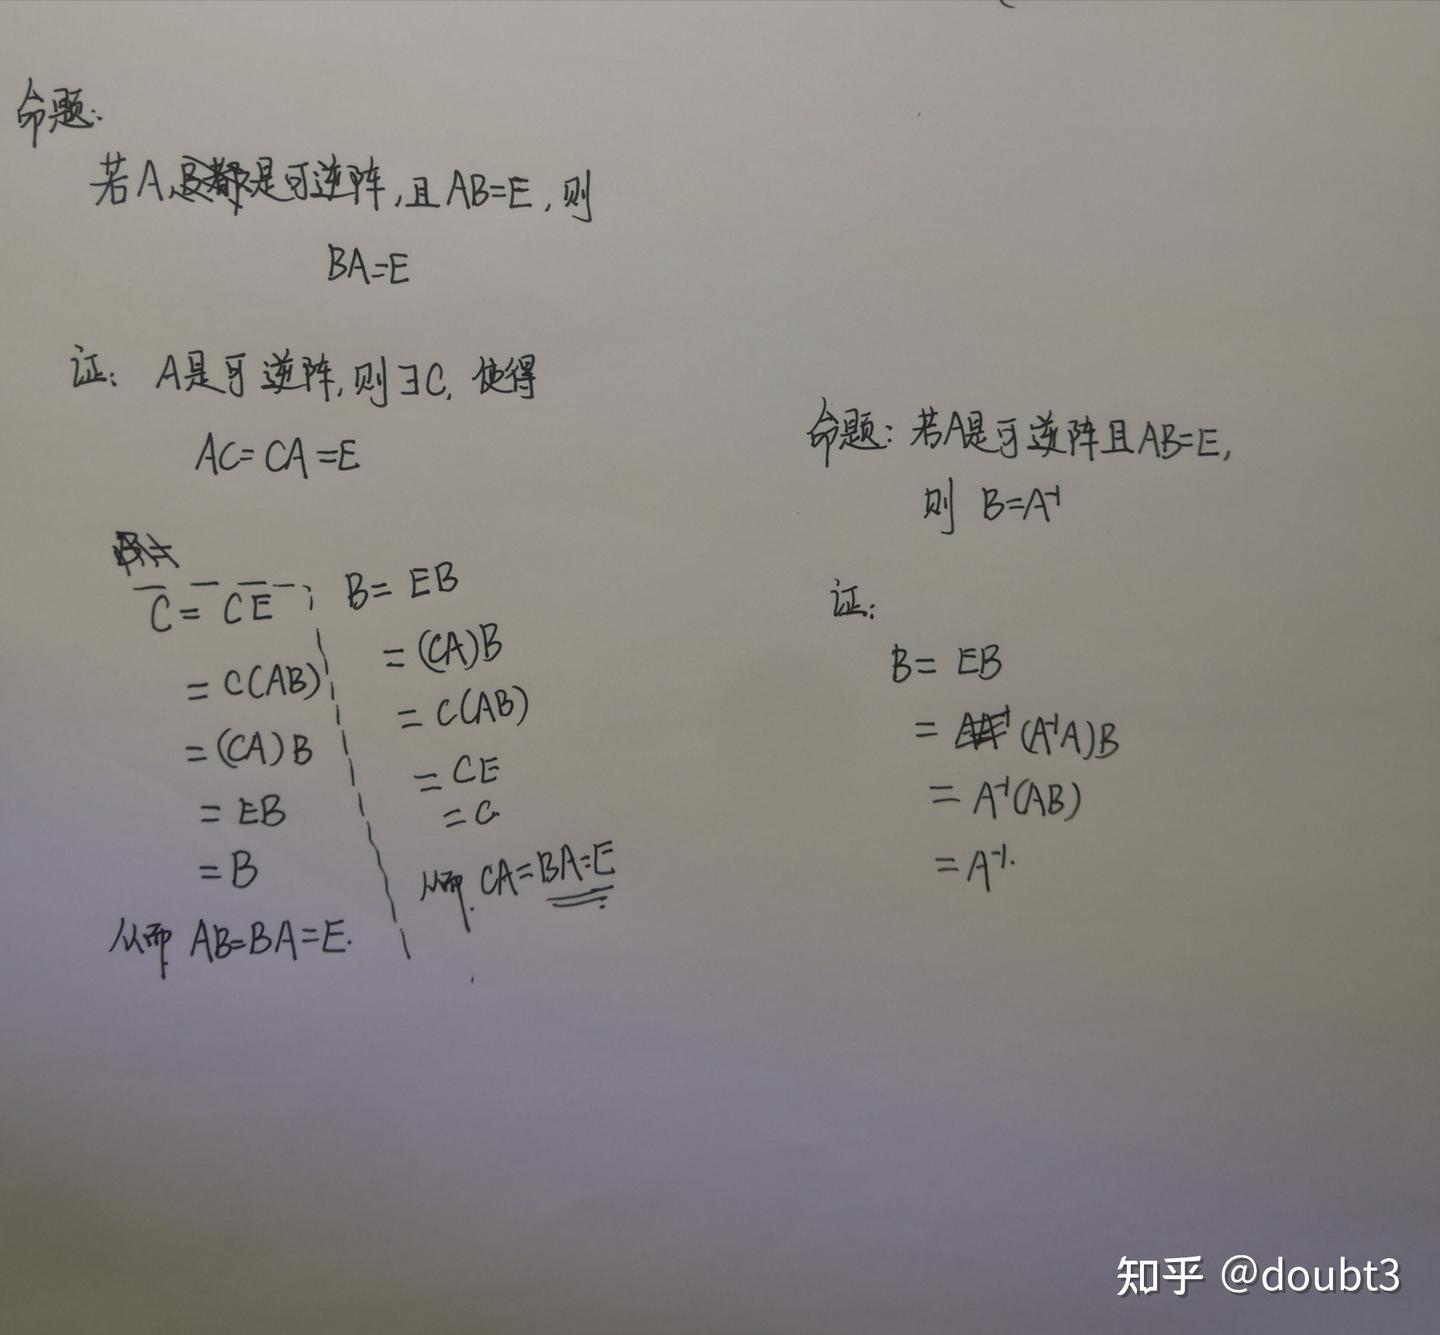 命题:
若A是可逆阵,且AB=E,则
BA=E
证: A是可逆阵,则∃C,使得
AC=CA=E
C=CE
=C(AB)
=(CA)B
=EB
=B
从而 AB=BA=E.
B=EB
=(CA)B
=C(AB)
=CE
=C
从而, CA=BA=E
命题:若A是可逆阵且AB=E,
则 B=A⁻¹
证:
B=EB
=(A⁻¹A)B
=A⁻¹(AB)
=A⁻¹.
知乎 @doubt3